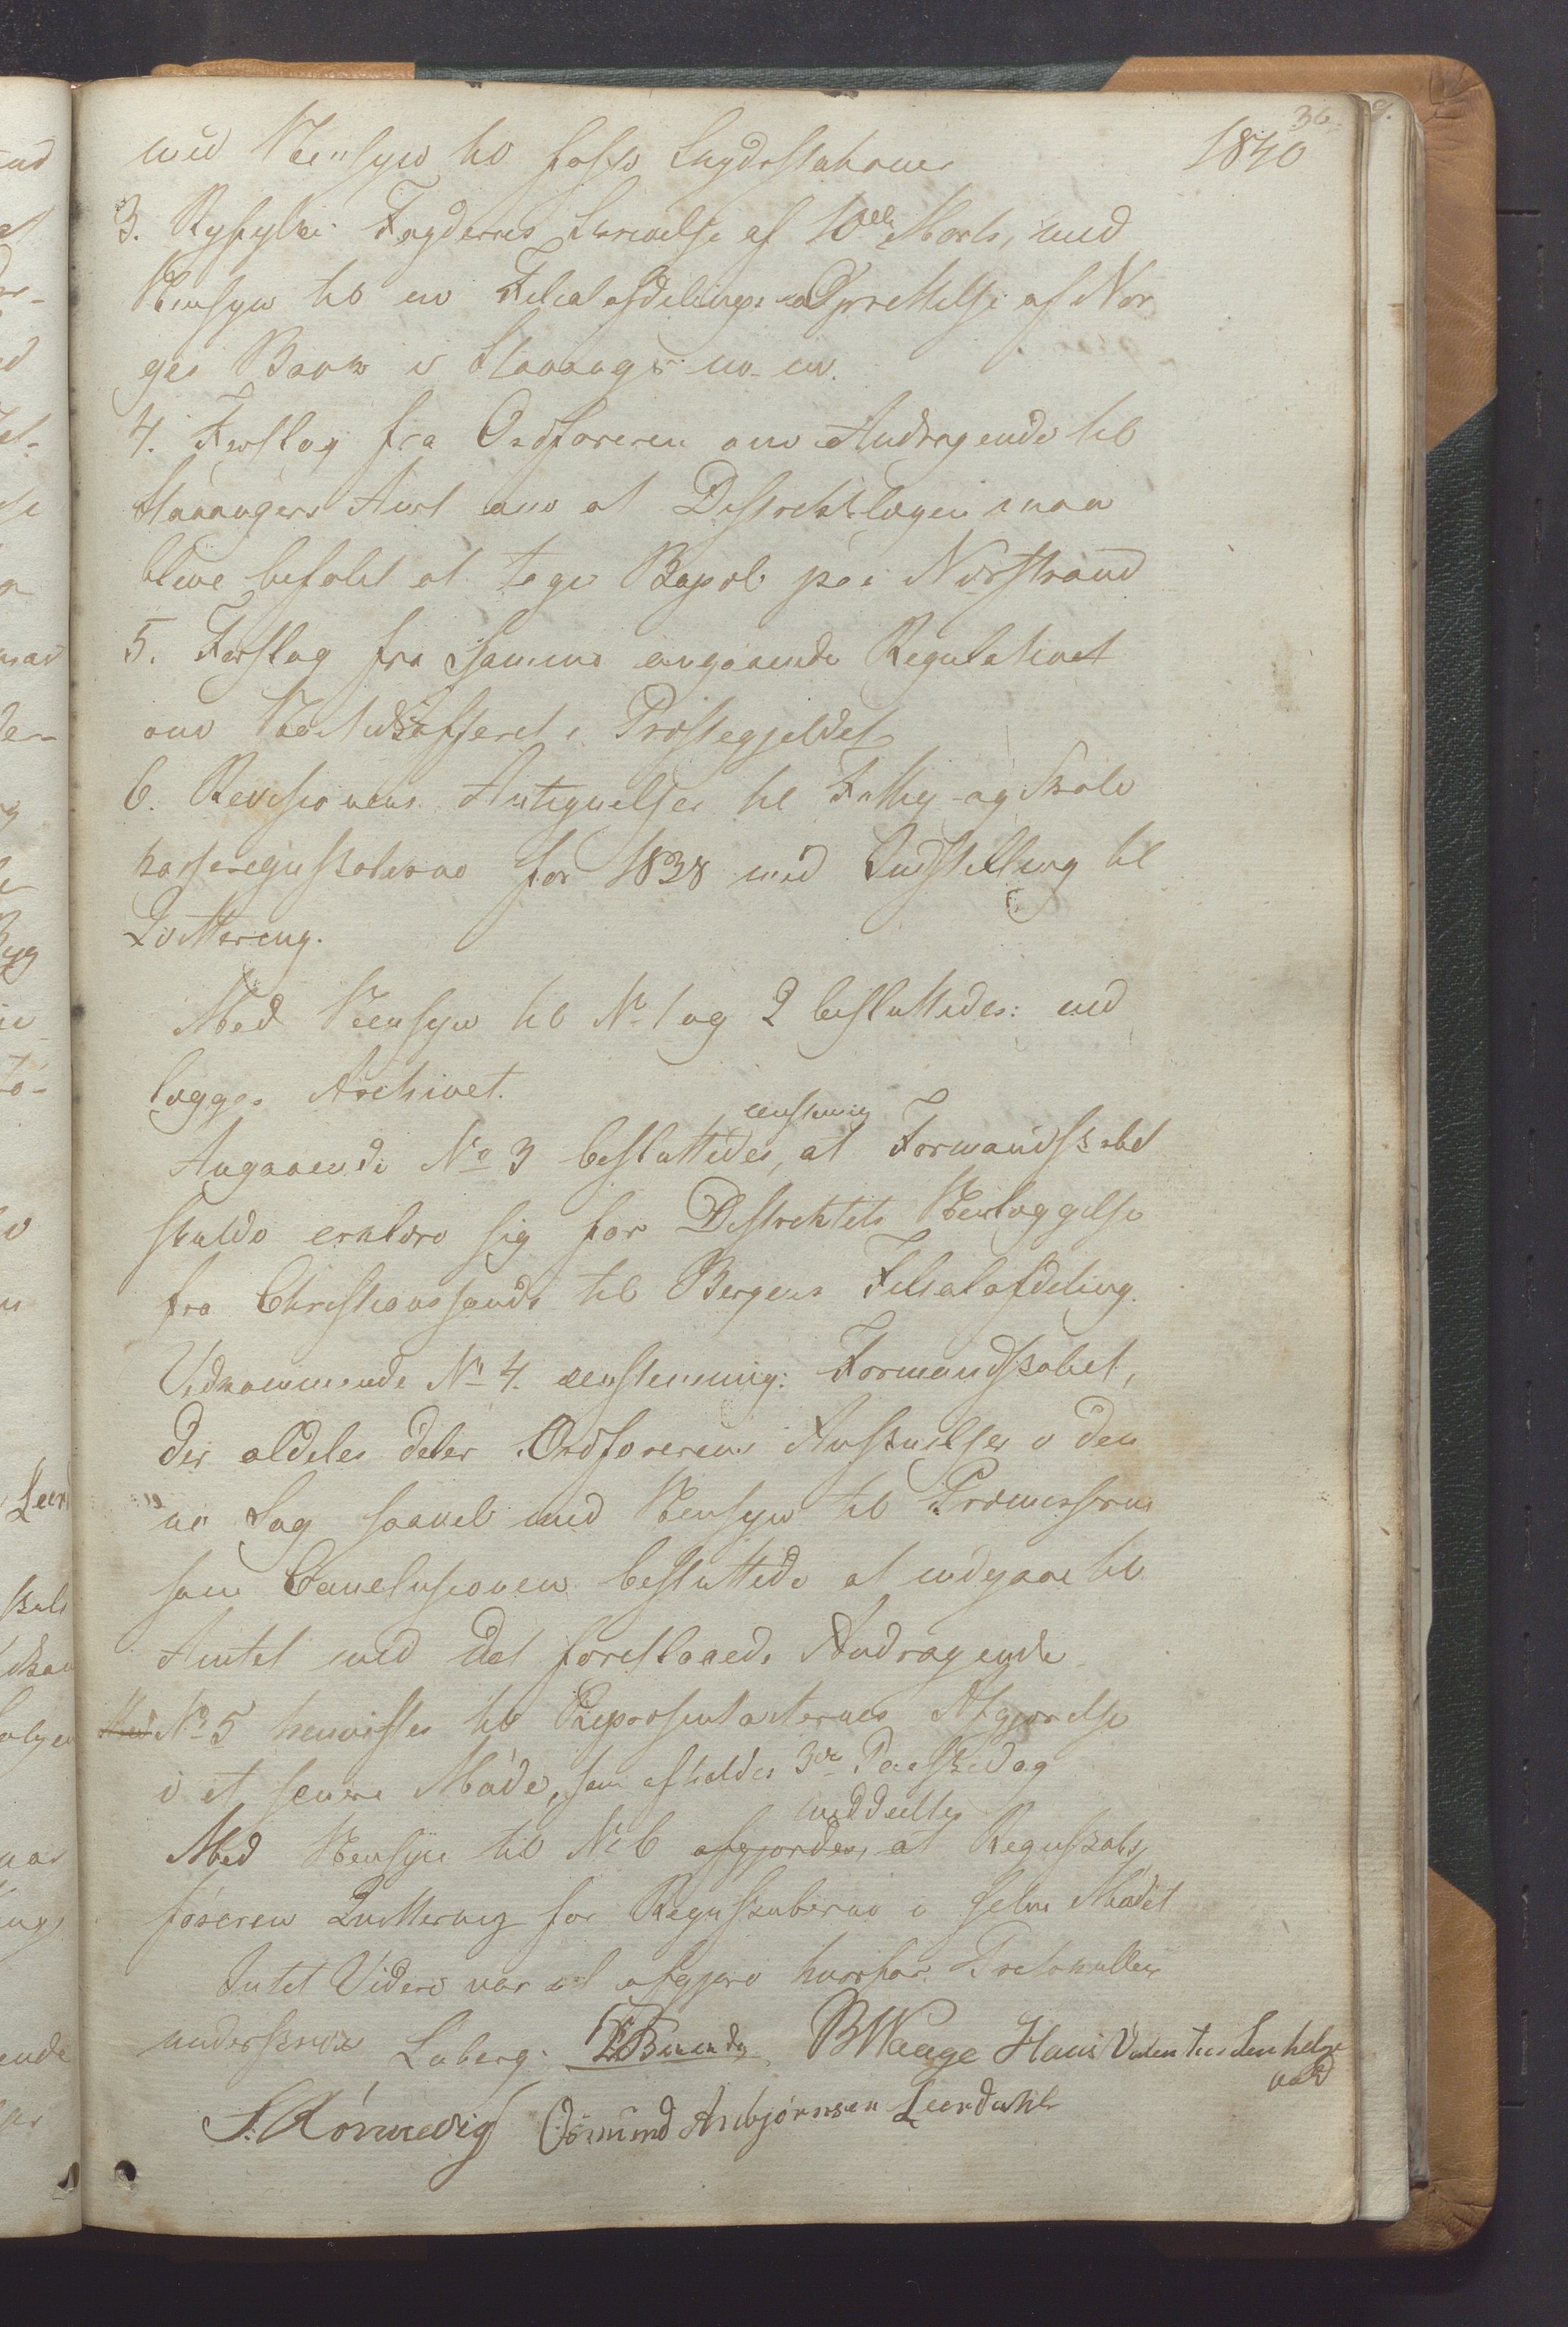 36.
1840
med Hensyn til faste Lugdsstationer
3. Ryfylke Fogderies Skrivelse af 10de Marts, med
Hensyn til en Filialafdelings Oprettelse af Nor
ges Bank i Stavanger m. m.
4. Forslag fra Ordføreren om Andragende til
Stavangers Amt om at Districtslægen maa
blive befalet at tage Bopæl paa Nærstrand
5. Forslag fra Samme angaaende Regulativet
om Næringsskatten i Præstegjeldet
6. Revisionens Antegnelser til Fattig- og Skole
kasseregnskaberne for 1838 med Indstilling til
Qvittering.
Med Hensyn til No 1 og 2 besluttedes: ned
lægges Archivet.
eenstemmig
Angaaende No 3 besluttedes, at Formandskabet
skulde erklære sig for Districtets Henlæggelse
fra Christianssands til Bergens Filialafdeling.
Vedkommende No 4. eenstemmig: Formandskabet,
der aldeles deler Ordførerens Anskuelser i den
ne Sag saavel med Hensyn til Præmisserne
som Conclusionen besluttede at indgaae til
Amtet med det foreslaaede Andragende
No 5 henvistes til Repræsentanternes Afgjørelse
i et senere Møde, som afholdes 3die Paaskedag
meddeeltes
Med Hensyn til No 6 afgjordes, at Regnskabs
føreren Qvittering for Regnskaberne i selve Mødet
Intet Videre var at afgjøre hvorfor Protokollen
underskrives Laberg. BWaage Hans Valentinsen helge
vold
S. Rønnevig Osmund Asbjørnsen Leerdahl